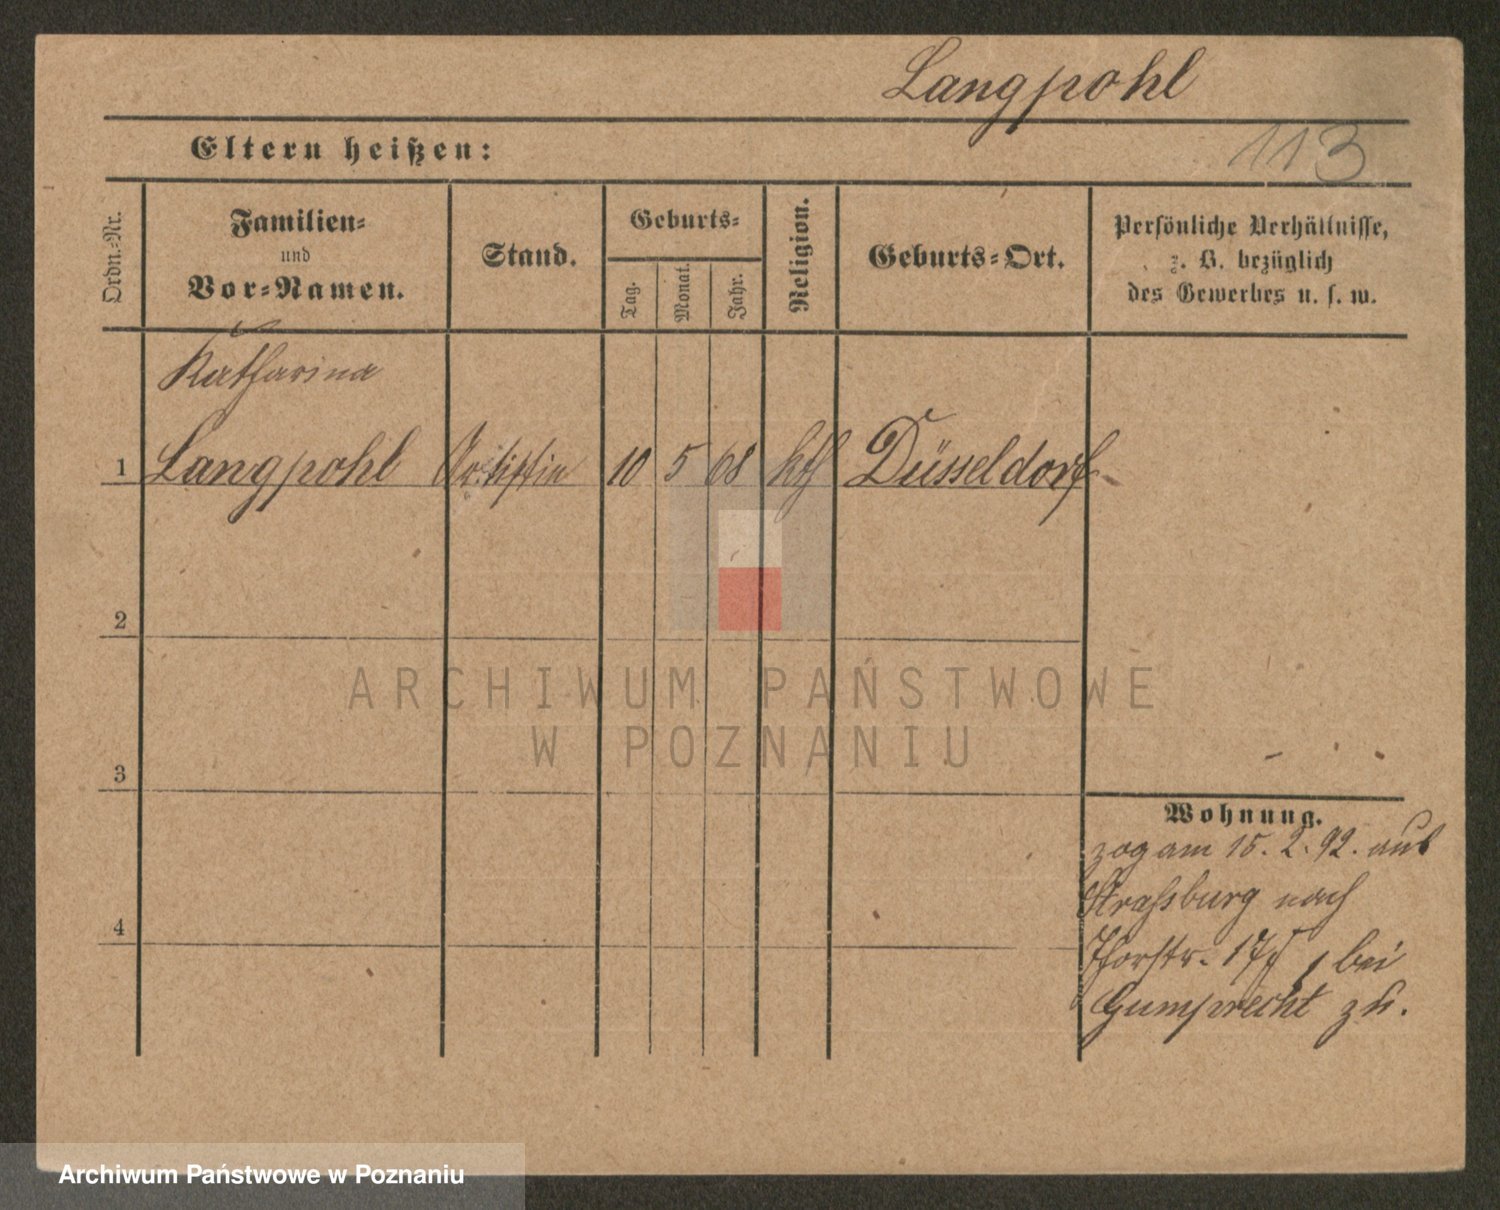 Langpohl
113
Eltern heißen:
Ordn.-Nr.
Familien-
und
Vor-Namen.
Stand.
Geburts-
Tag.
Monat.
Jahr.
Religion.
Geburts-Ort.
Persönliche Verhältnisse,
z. B. bezüglich
des Gewerbes u. s. w.
Katharina
1 Langpohl Artistin 10 5 68 kth Düsseldorf
2
3
4
Wohnung.
zog am 15. 2. 92. aus
Straßburg nach
Thorstr. 17, bei
Gumprecht zu.
ARCHIWUM PAŃSTWOWE
W POZNANIU
Archiwum Państwowe w Poznaniu